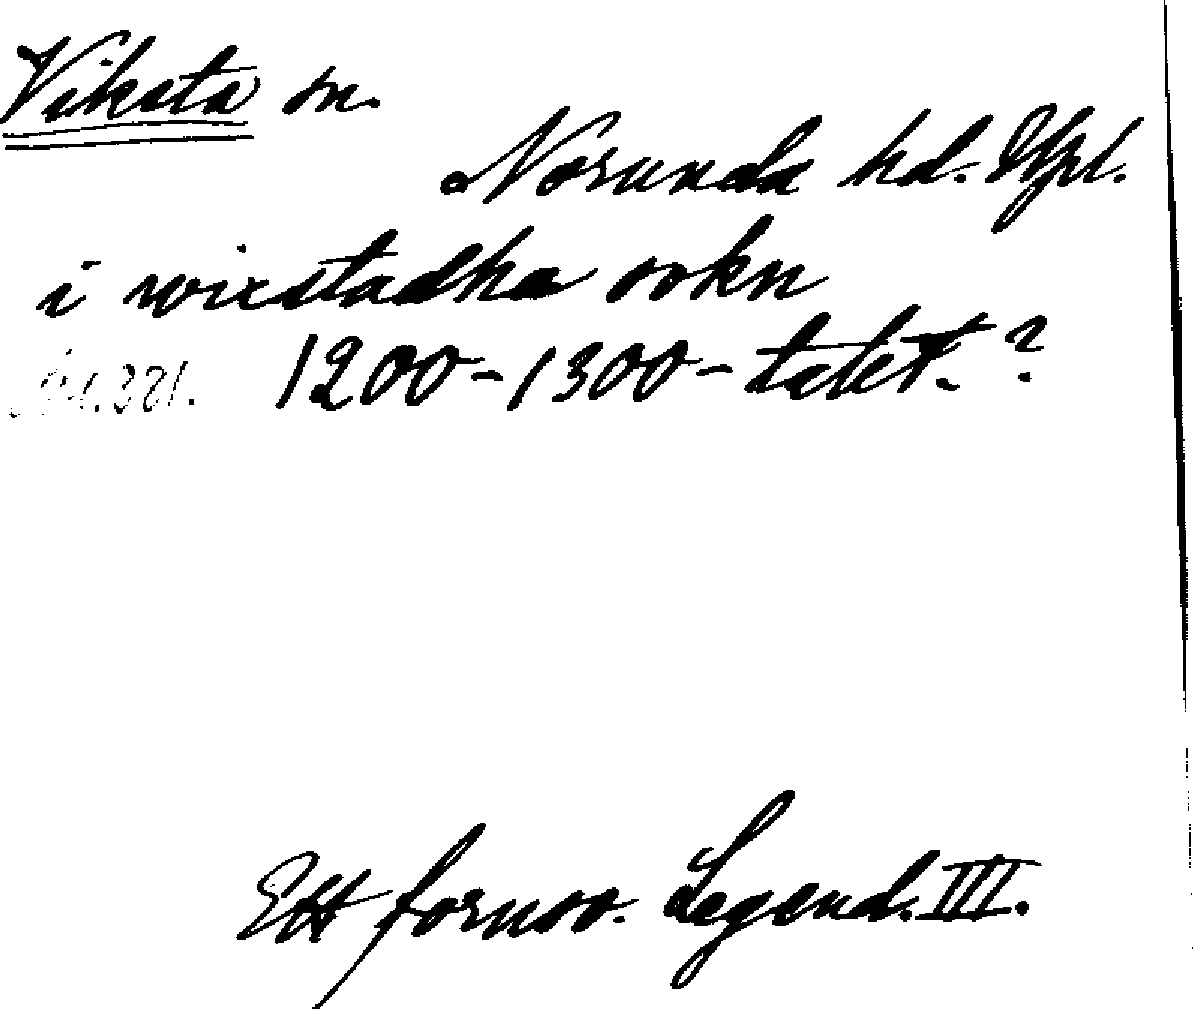 Viksta sn.
Norunda hd. Upl.
i wixstadha sokn
1200-1300-talet.?
381.
Ett fornsv. Legend. III.